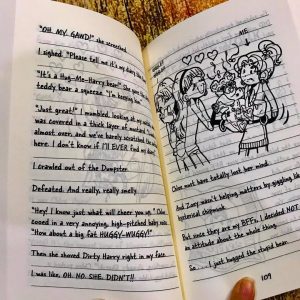 "OH. MY. GAWD!" she screeched.
I sighed. "Please tell me it's my diary
"It's a Hug-Me-Harry bear!" She gave the
teddy bear a squeeze. "I'm keeping him!"
"Just great!" I mumbled, looking at my
was covered in a thick layer of mustard.
almost over, and we've barely scratched the
here. I don't know if I'LL EVER find my diary
I crawled out of the Dumpster.
Defeated. And really, really smelly.
"Hey! I know just what will cheer you up," Chloe
cooed in a very annoying, high-pitched baby
"How about a big fat HUGGY-WUGGY!"
Then she shoved Dirty Harry right in my face.
I was like, OH. NO. SHE. DIDN'T!!
ME
Chloe must have totally lost her mind.
And Zoey wasn't helping matters by giggling like
hysterical chipmunk.
But since they are my BFFs, I decided NOT
an attitude about the whole thing.
So . . . , I just hugged the stupid bear.
109